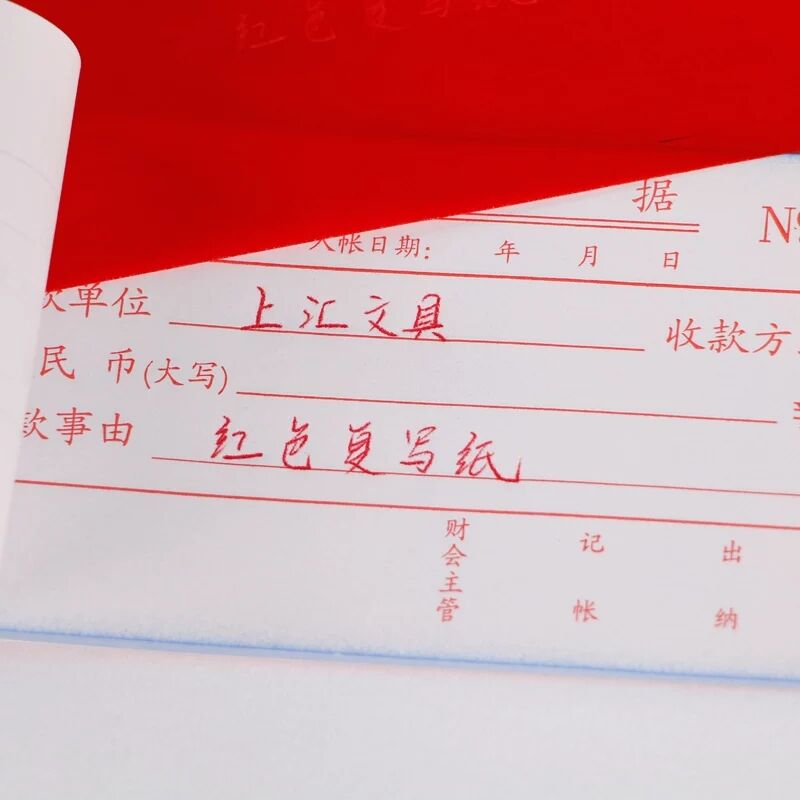 红色复写纸
据
入帐日期: 年 月 日 №
款单位 上汇文具 收款方
民 币(大写)
款事由 红色复写纸
财会主管 记帐 出纳